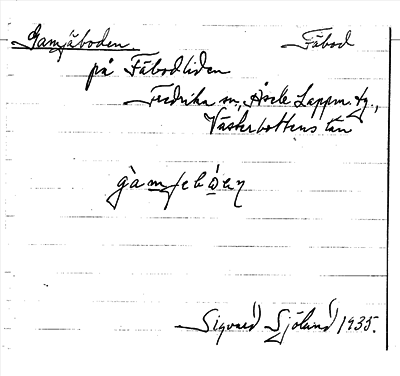 Gamjäboden Fäbod
på Fäbodliden
Fredrika sn, Åsele Lappm. tg.,
Västerbottens län
Sigvard Sjölund 1935.